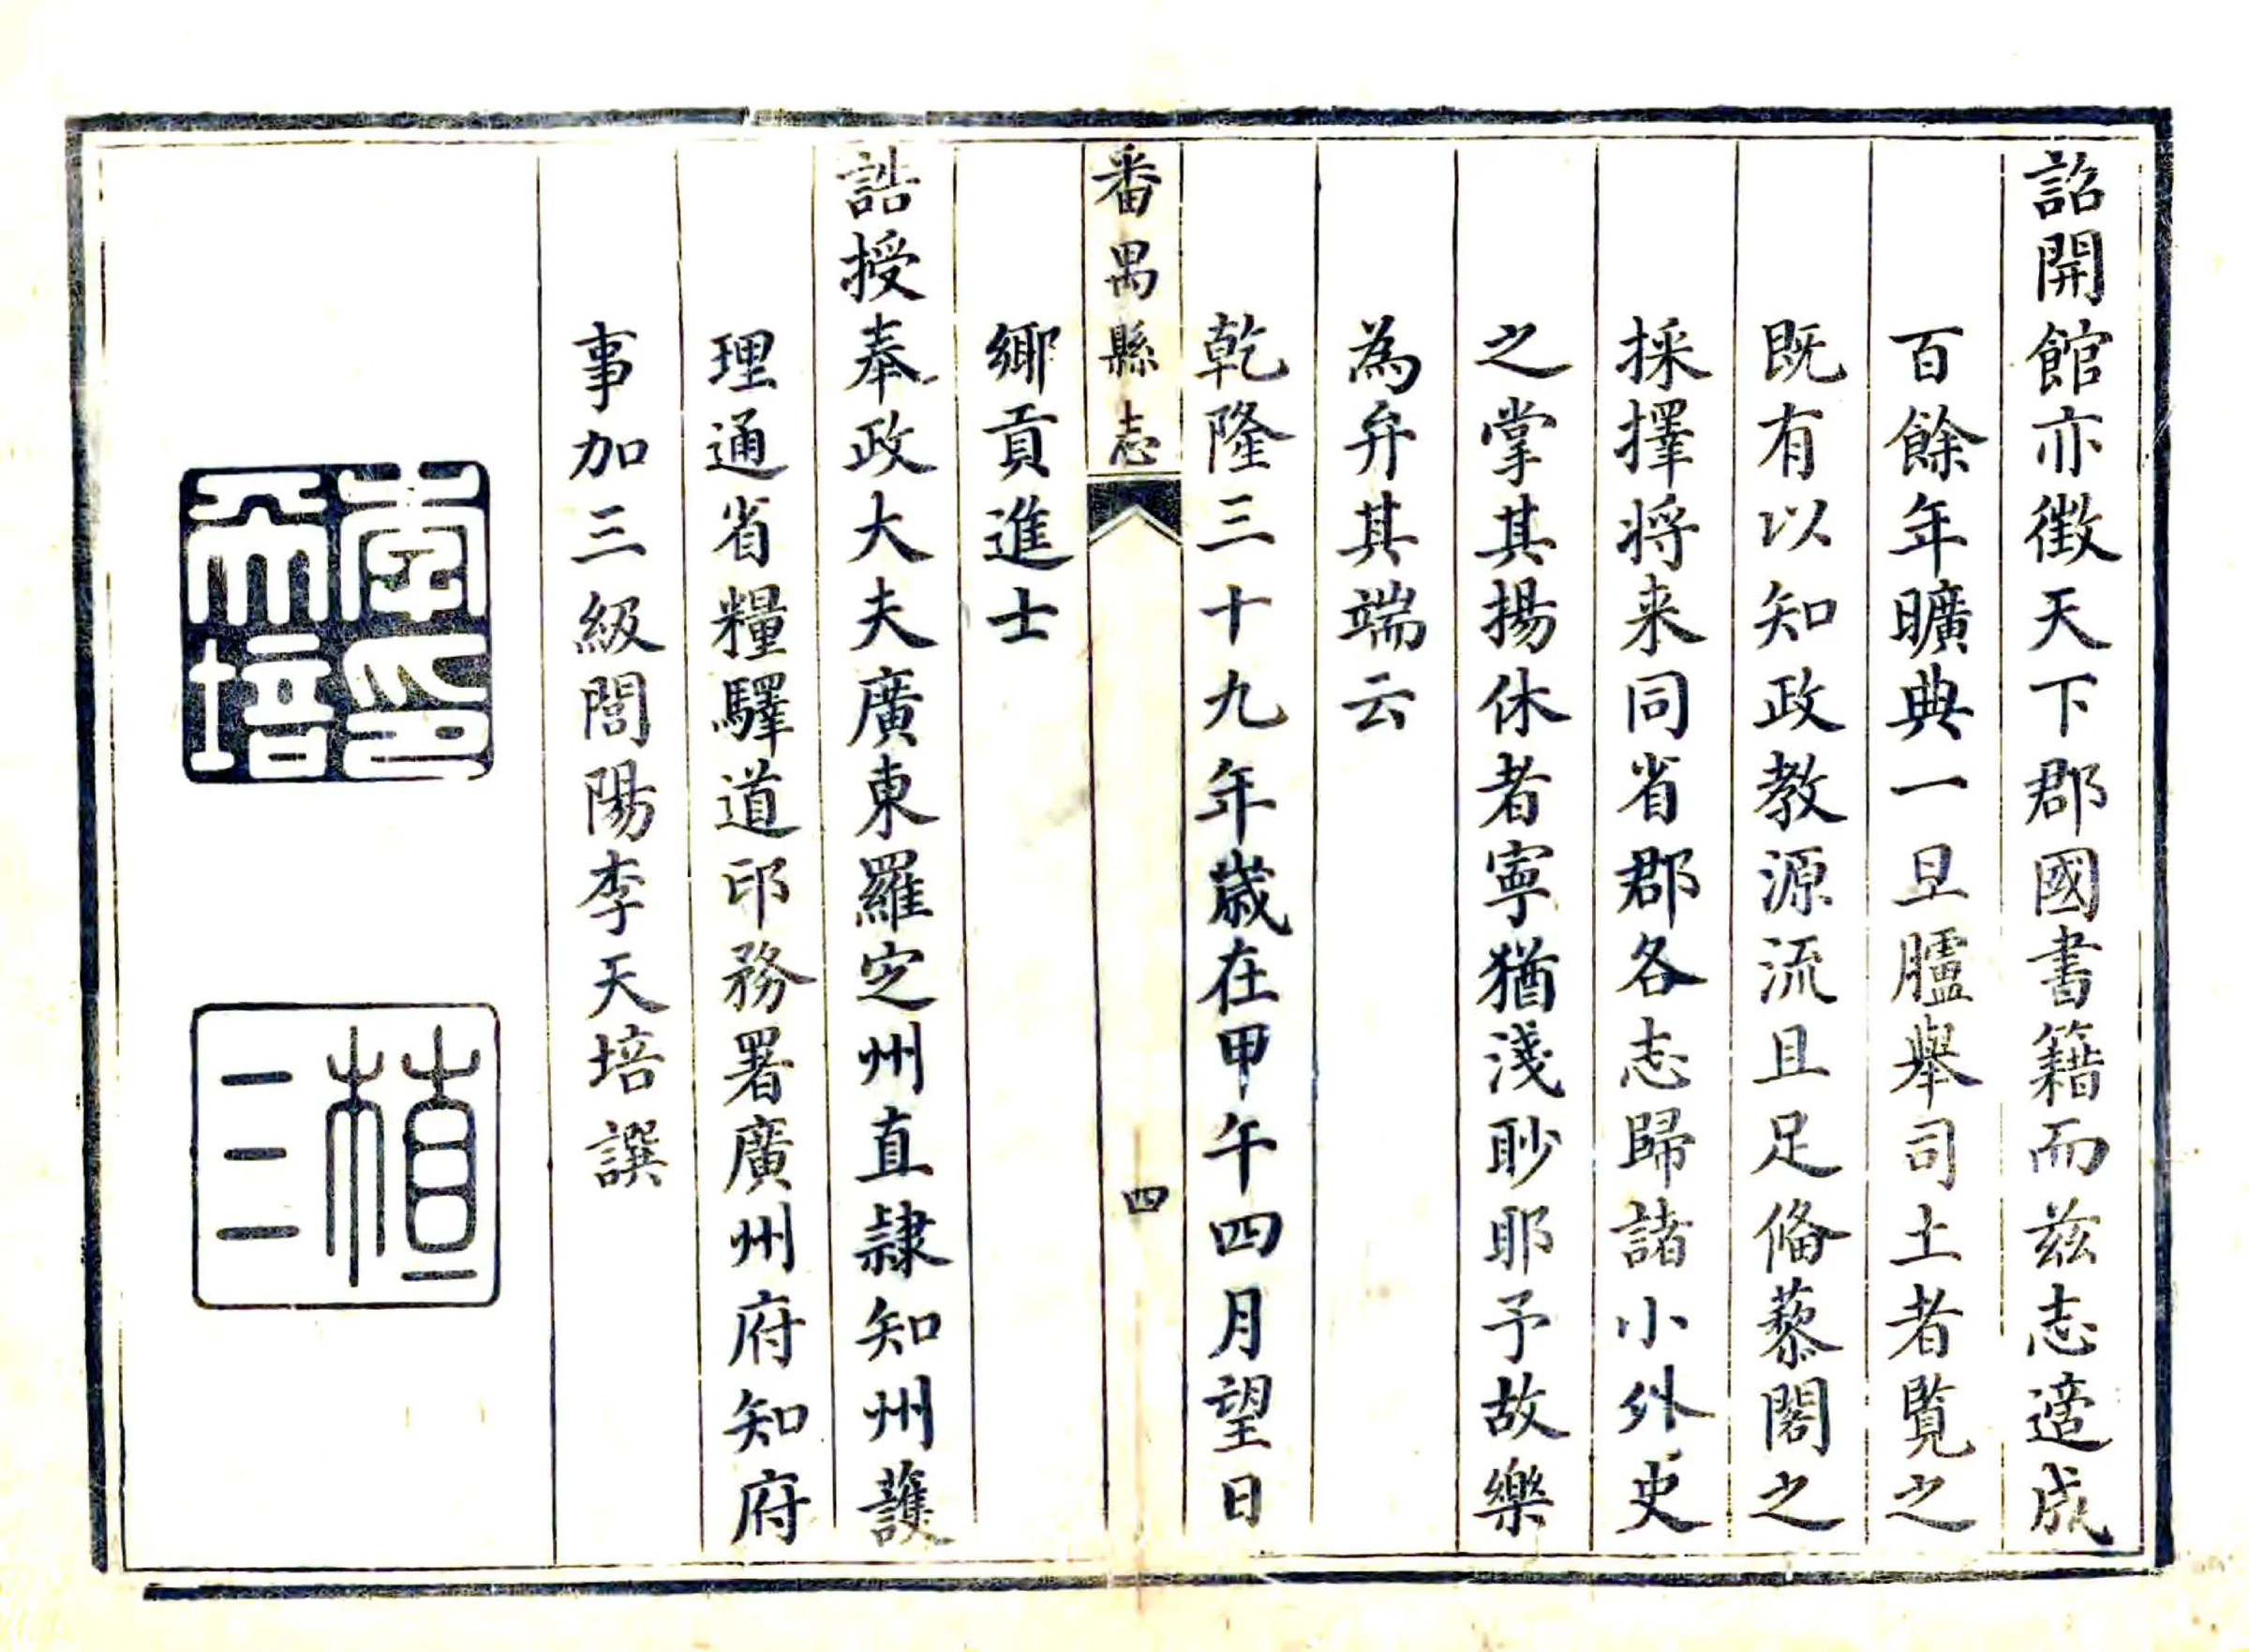 詔開館亦徴天下郡國書籍而茲志適成
百餘年曠典一旦臚舉司土者覽之
既有以知政教源流且足俻藜閣之
採擇将来同省郡各志歸諸小外史
之掌其揚休者寧猶淺眇耶予故樂
為弁其端云
乾隆三十九年歲在甲午四月望日
番禺縣志
四
鄉貢進士
誥授奉政大夫廣東羅定州直隷知州護
理通省糧驛道印務署廣州府知府
事加三級閭陽李天培譔
李印
天培
植
三